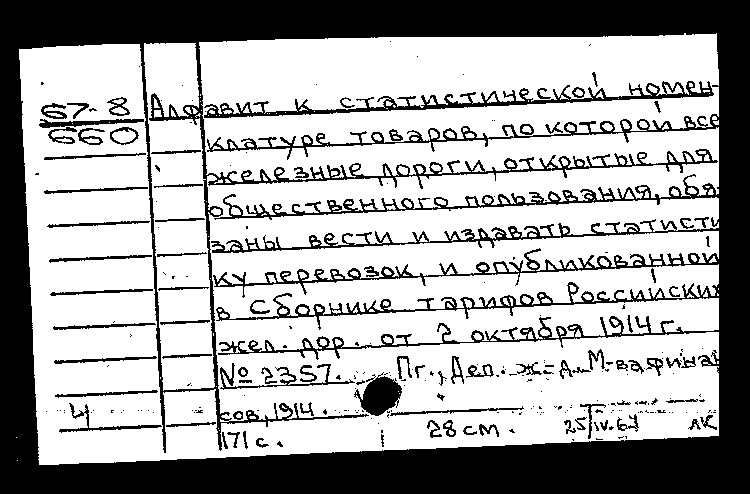 57-8 Алфавит к статистической номен-
660 клатуре товаров, по которой все
железные дороги, открытые для
общественного пользования, обя-
заны вести и издавать статисти
ку перевозок, и опубликованной
в Сборнике тарифов Российских
жел. дор. от 2 октября 1914 г.
№ 2357. Пг., Деп. ж-д. М-ва финан
4 сов, 1914.
171 с. 28 см. 25/IV.67 ЛК